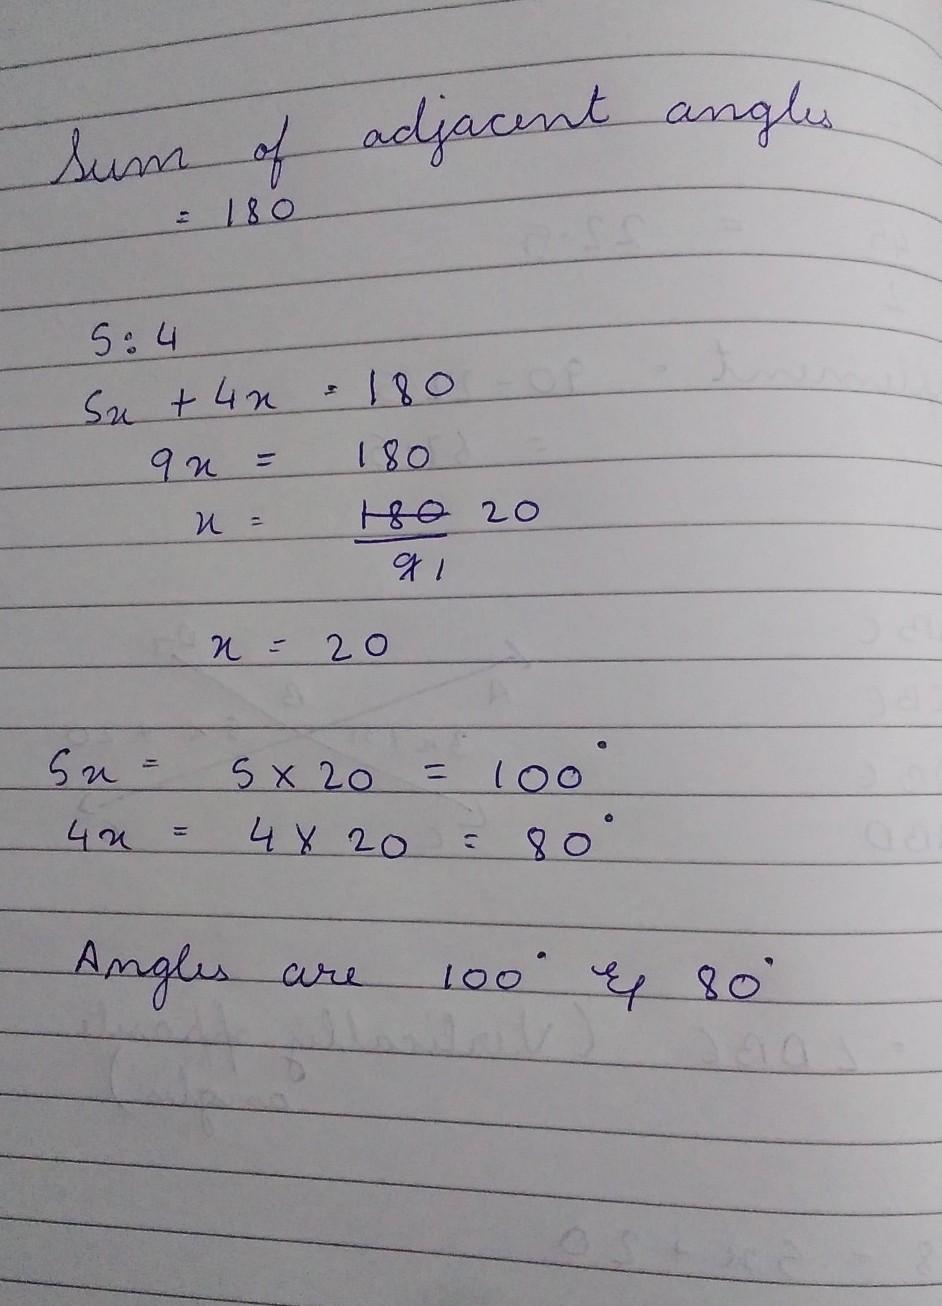 Sum of adjacent angles
= 180
5:4
5x + 4x = 180
9x = 180
x = 180 20
9 1
x = 20
5x = 5 x 20 = 100°
4x = 4 x 20 = 80°
Angles are 100° & 80°